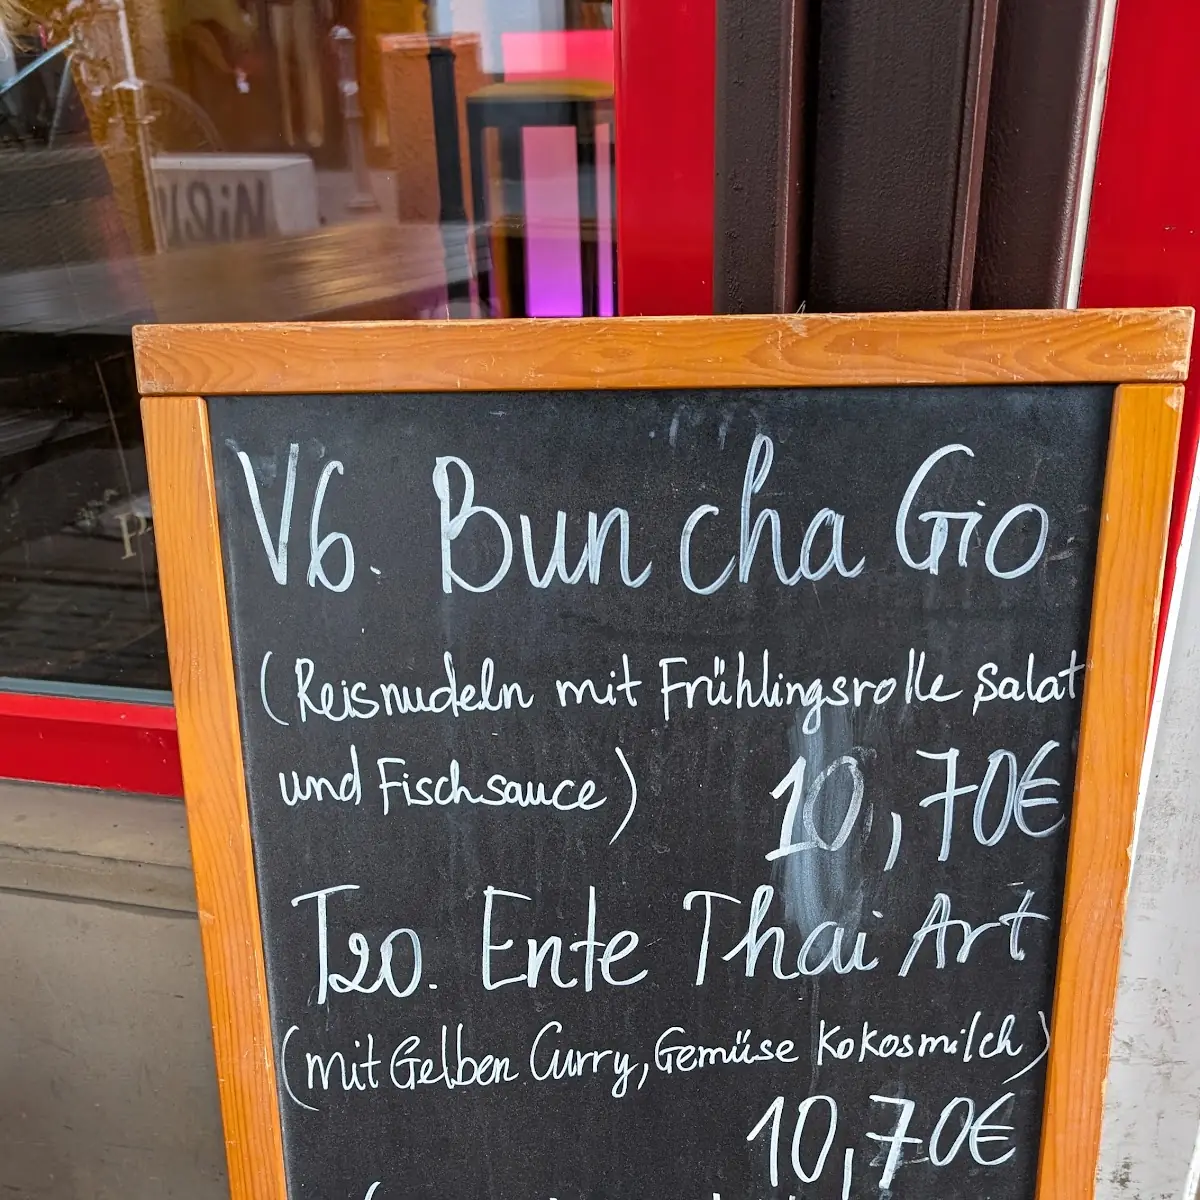 V6. Bun cha Gio
(Reisnudeln mit Frühlingsrolle Salat
und Fischsauce)
10,70€
T20. Ente Thai Art
(mit Gelben Curry, Gemüse Kokosmilch)
10,70€